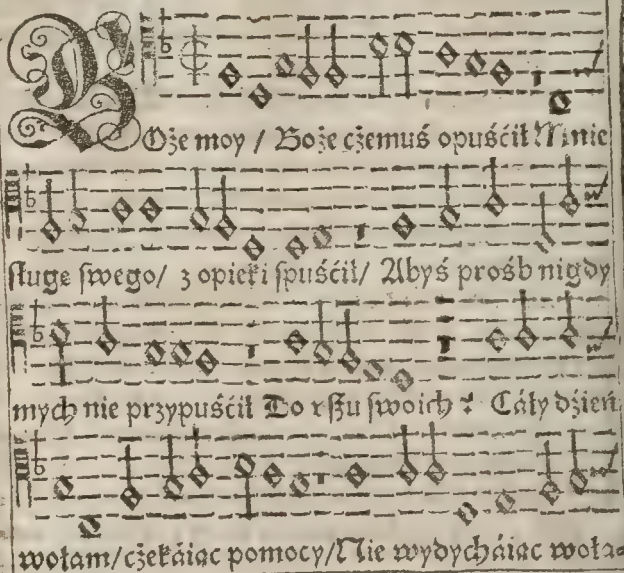 BOże moy / Boże cżemuś opuśćił Mnie
sługe swego/ z opieki spuśćił/ Abyś prośb nigdy
mych nie przypuśćił Do vszu swoich ? Cáły dźień
wołam/cżekáiąc pomocy/Nie wydycháiąc woła=